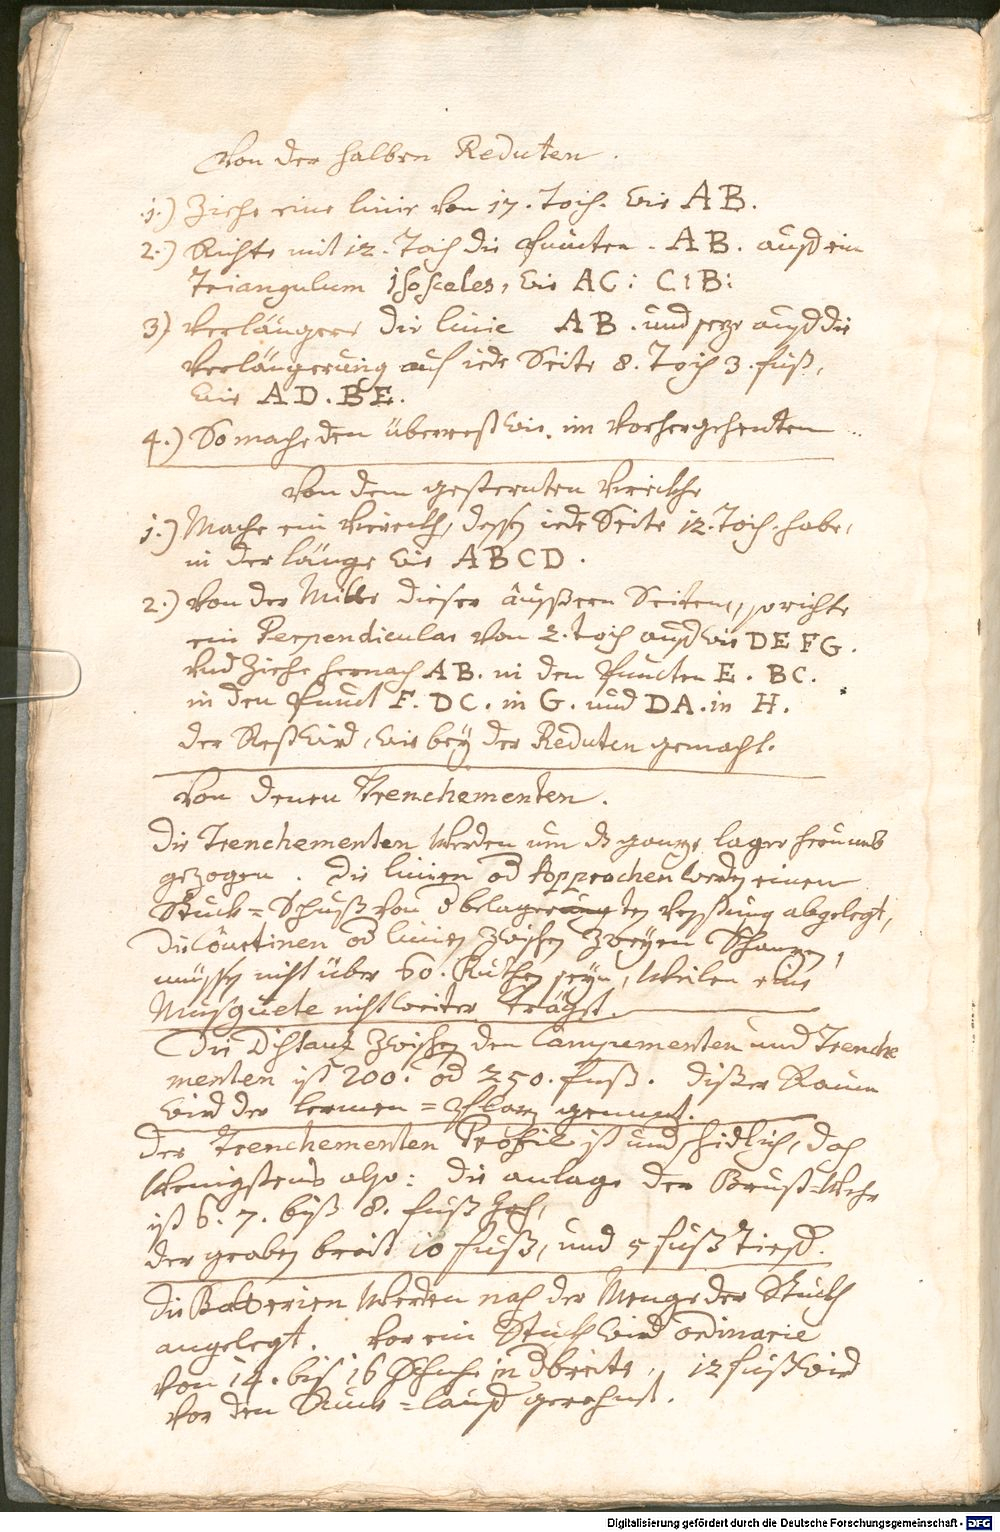 Von der halben Reduten.
1.) Ziehe eine linie von 17. Tois. wie AB.
2.) Richte mit 12. Tois die Puncten. AB. auff ein
Triangulum isosceles, wie AC: CB:
3) Verlängere die linie AB. und seze auff die
Verlängerung auf iede Seite 8. Tois 3. fuß,
wie AD. BE.
4.) So mache den überrest wie im vorhergehenten ..
Von dem gesternten Viereckhe
1.) Mache ein Viereckh, dessen iede Seite 12. Tois. habe,
in der länge wie ABCD.
2.) Von der Mitte dieser äussern Seiten, so richte
ein Perpendicular von 2. Tois auff wie DEFG.
Und Ziehe hernach AB. in den Puncten E. BC.
in den Punct F. DC. in G. und DA. in H.
der Rest wird, wie bey der Reduten gemacht.
Von denen Trenchementen.
Die Trenchementen werden um dz ganze lager herumb
gezogen. Die linien od Approchen werden einen
Stuck=Schuß von d belagerten Vestung abgelegt,
die Courtinen od linien zwischen zweyen Schanzen,
müssen nicht über 60. Ruthen seyn, weilen eine
Musquete nicht weiter trägt.
Die Distanz zwischen den Campementen und Trenche
menten ist 200. od 250. fuß. dißer Raum
wird der lermen=Plaz genent.
Der Trenchementen Profil ist undschidlich, doch
wenigstens also: die anlage der Brust=Wehr
ist 6. 7. biß 8. fuß hoch,
der graben breit 10 fuß, und 5 fuß tieff.
Die Batterien werden nach der Menge der Stuckh
angelegt. Vor ein Stuckh wird ordinarie
von 14. bis 16 Schuhe in d breite, 12 fuß wird
vor den Stuck=lauff gerechnet.
Digitalisierung gefördert durch die Deutsche Forschungsgemeinschaft - DFG